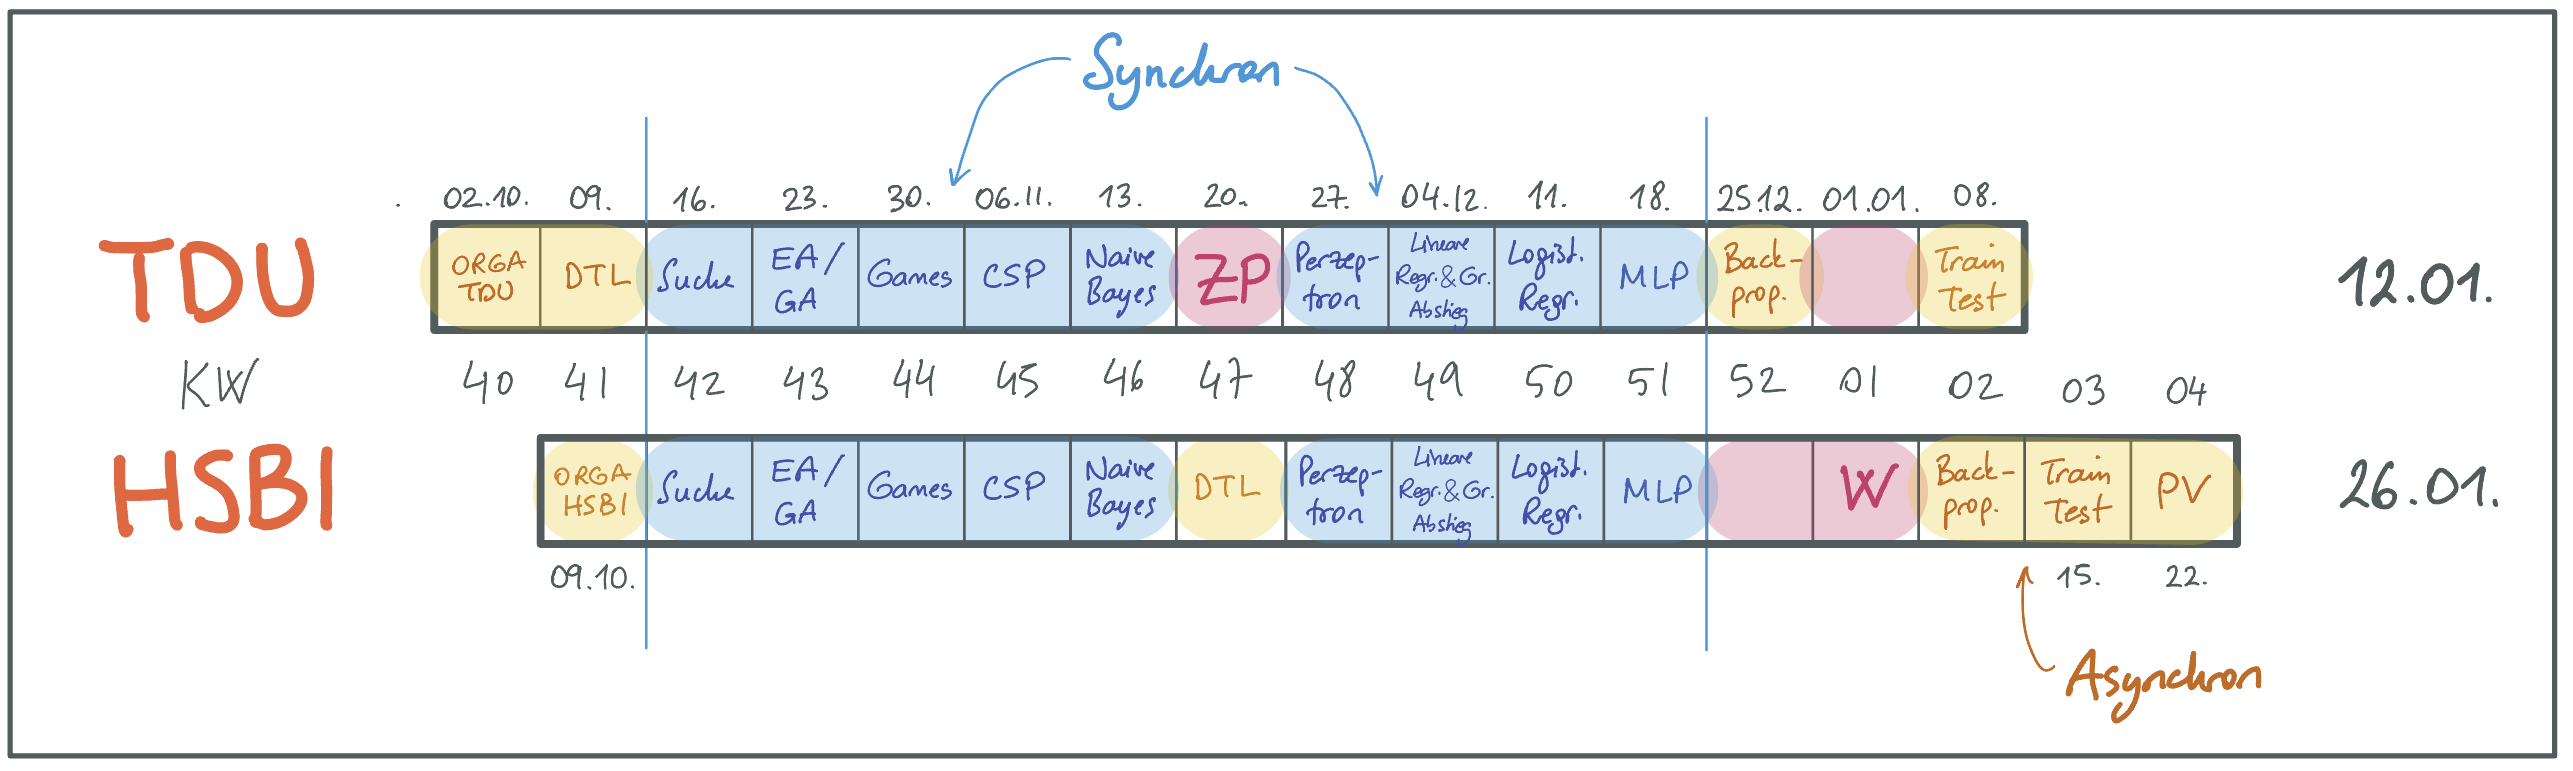 Synchron
02.10. 09. 16. 23. 30. 06.11. 13. 20. 27. 04.12. 11. 18. 25.12. 01.01. 08.
TDU
ORGA
TDU
DTL
Suche
EA/
GA
Games
CSP
Naive
Bayes
ZP
Perzep-
tron
Lineare
Regr.&Gr.
Abstieg
Logist.
Regr.
MLP
Back-
prop.
Train
Test
12.01.
KW 40 41 42 43 44 45 46 47 48 49 50 51 52 01 02 03 04
HSBI
ORGA
HSBI
Suche
EA/
GA
Games
CSP
Naive
Bayes
DTL
Perzep-
tron
Lineare
Regr.&Gr.
Abstieg
Logist.
Regr.
MLP
W
Back-
prop.
Train
Test
PV
26.01.
09.10. 15. 22.
Asynchron